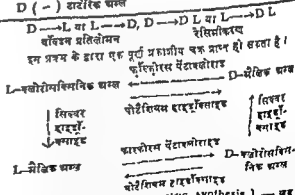 D (-) टार्टरिक अम्ल
D⟶L या L⟶D, D⟶D L या L⟶D L
वॉल्डन प्रतिलोमन रेसिमीकरण
इस प्रक्रम के द्वारा एक पूर्ण प्रकाशीय चक्र प्राप्त हो सकता है।
फॉस्फोरस पेंटाक्लोराइड
L-क्लोरोसक्सिनिक अम्ल D-मैलिक अम्ल
पोटैशियम हाइड्रॉक्साइड
सिल्वर सिल्वर
हाइड्रॉ- हाइड्रॉ-
क्साइड क्साइड
फास्फोरस पेंटाक्लोराइड
L-मैलिक अम्ल D-क्लोरोसक्सि-
निक अम्ल
पोटैशियम हाइड्रॉक्साइड
synthesis ]